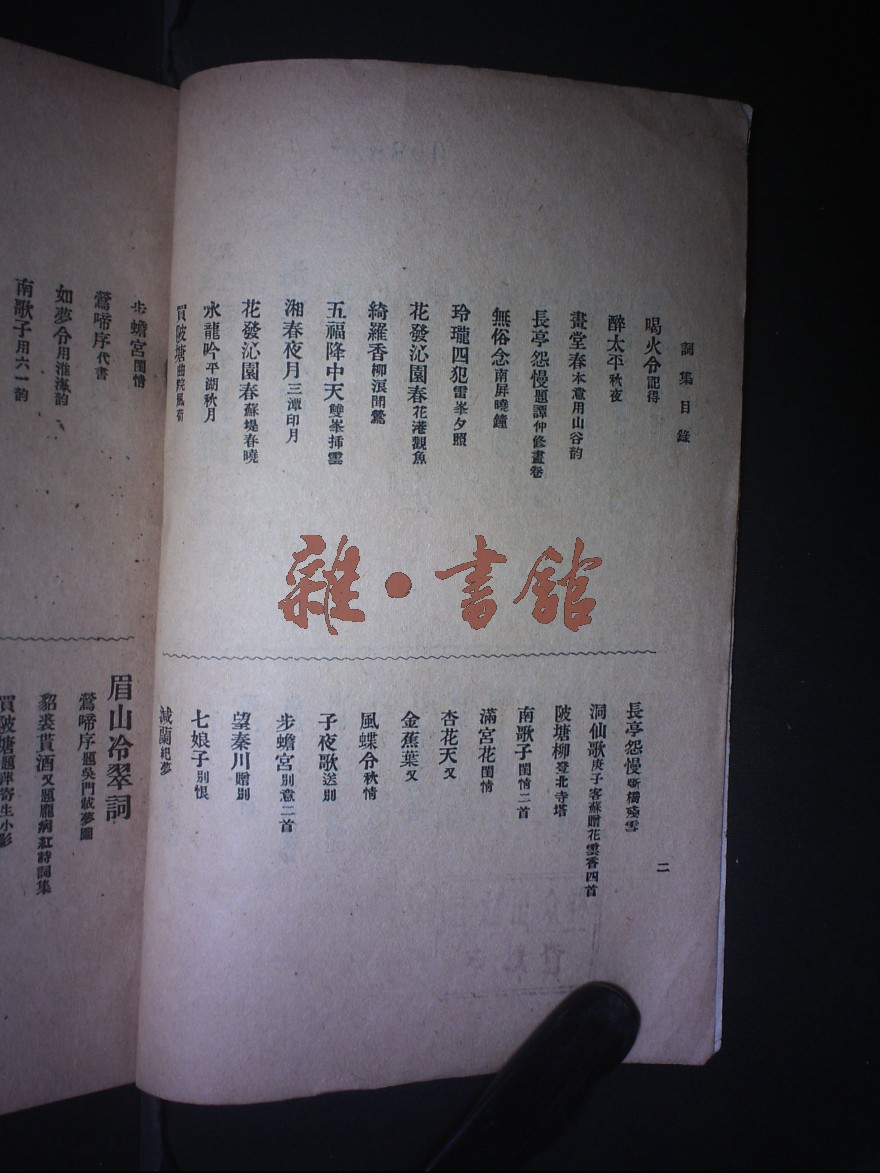 詞集目錄
喝火令記得
醉太平秋夜
畫堂春本意用山谷韵
長亭怨慢題譚仲修畫卷
無俗念南屏曉鐘
玲瓏四犯雷峯夕照
花發沁園春花港觀魚
綺羅香柳浪聞鶯
五福降中天雙峯插雲
湘春夜月三潭印月
花發沁園春蘇堤春曉
水龍吟平湖秋月
買陂塘曲院風荷
二
長亭怨慢斷橋殘雪
洞仙歌庚子客蘇贈花雲香四首
陂塘柳登北寺塔
南歌子閨情二首
滿宮花閨情
杏花天又
金蕉葉又
風蝶令秋情
子夜歌送別
步蟾宮別意二首
望秦川贈別
七娘子別恨
減蘭紀夢
步蟾宮閨情
鶯啼序代書
如夢令用淮海韵
南歌子用六一韵
眉山冷翠詞
鶯啼序題吳門載夢圖
貂裘貰酒又題龐病紅詩詞集
買陂塘題萍寄生小影
雜·書館